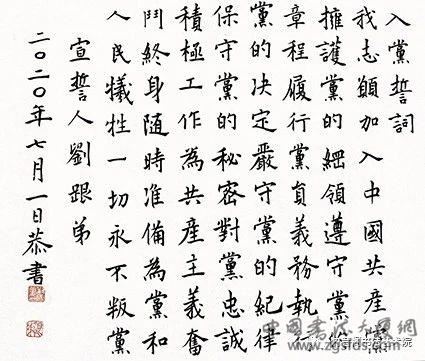 入黨誓詞
我志願加入中國共產黨
擁護黨的綱領遵守黨的
章程履行黨員義務執行
黨的决定嚴守黨的紀律
保守黨的秘密對黨忠誠
積極工作為共產主義奮
鬥終身隨時准備為黨和
人民犧牲一切永不叛黨
宣誓人劉跟弟
二〇二〇年七月一日恭書
www.zgsfds.com